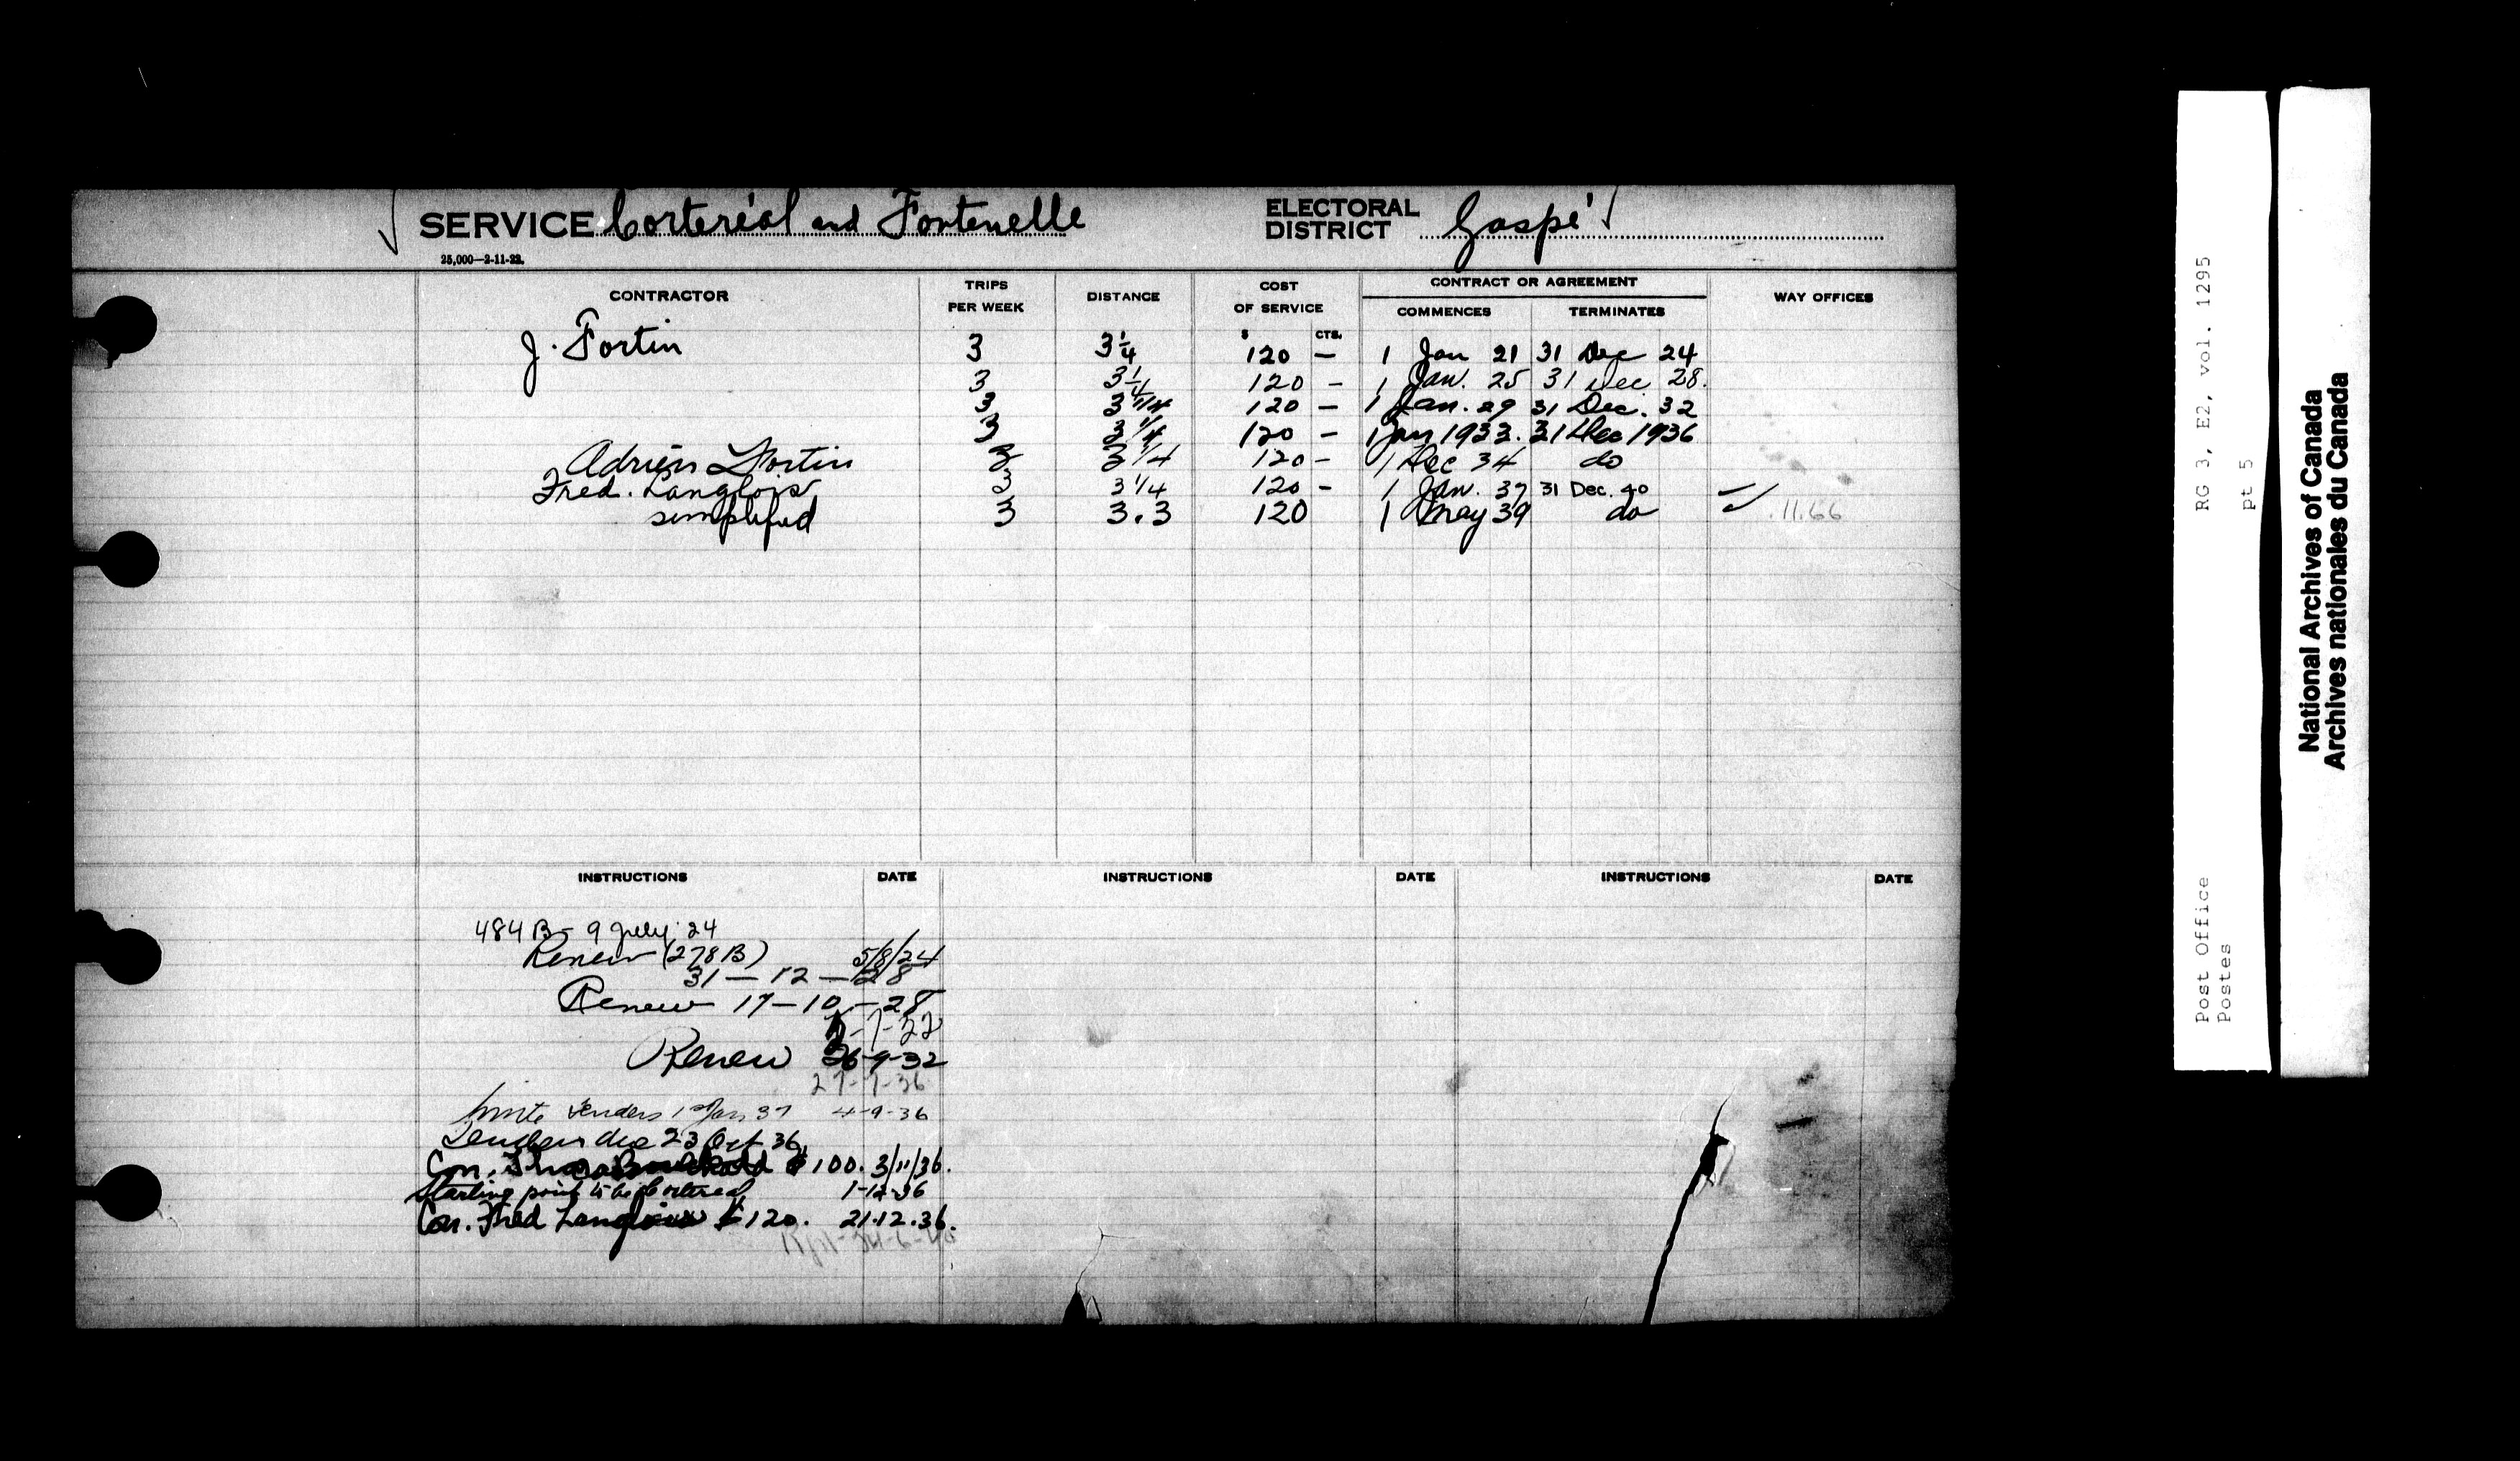 SERVICE Cortereál and Fontenelle ELECTORAL DISTRICT Gaspé
25,000—2-11-22.
CONTRACTOR TRIPS PER WEEK DISTANCE COST OF SERVICE CONTRACT OR AGREEMENT WAY OFFICES
$ CTS. COMMENCES TERMINATES
J. Fortin 3 3 1/4 120 — 1 Jan 21 31 Dec 24
3 3 1/4 120 — 1 Jan. 25 31 Dec 28.
3 3 1/4 120 — 1 Jan. 29 31 Dec. 32
3 3 1/4 120 — 1 Jan 1933. 31 Dec 1936
Adrien Fortin 3 3 1/4 120 — 1 Dec 34 do
Fred. Langlois 3 3 1/4 120 — 1 Jan. 37 31 Dec. 40
simplified 3 3.3 120 1 May 39 do 11.66
INSTRUCTIONS DATE INSTRUCTIONS DATE INSTRUCTIONS DATE
484 B – 9 July 24
Renew (278 B) 5/8/24
31 — 12 — 28
Renew 17 — 10 — 28
Renew 26-9-32
27-7-36
Invite tenders 1st Jan 37 4-9-36
Tenders due 23 Oct 36
Con. $100. 3/11/36.
Starting point to be Cortereal 1-12-36
Con. Fred Langlois $120. 21.12.36.
RG 3, E2, vol. 1295
pt 5
Post Office
Postes
National Archives of Canada
Archives nationales du Canada